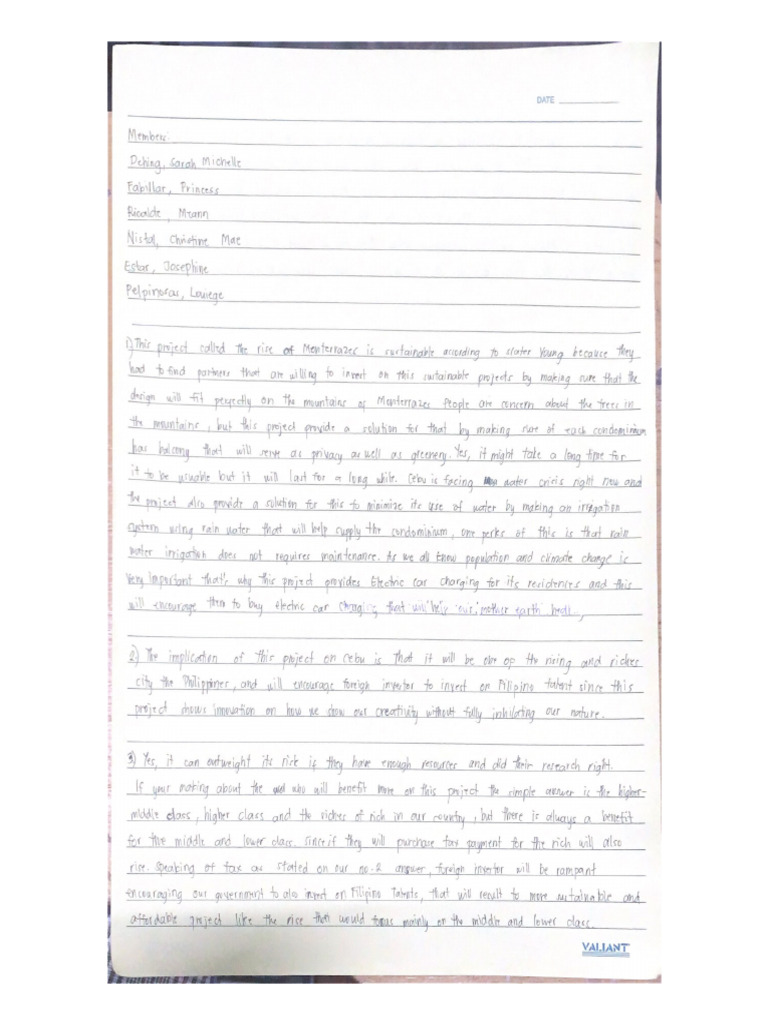 DATE
Members:
Dehing, Sarah Michelle
Fabillar, Princess
Ricalde, Mzann
Nistal, Christine Mae
Estar, Josephine
Pelpinosas, Louiege
1) This project called The rise of Monterrazes is sustainable according to slater Young because they
had to find partners that are willing to invest on this sustainable projects by making sure that the
design will fit perfectly on the mountains of Monterrazes People are concern about the trees in
the mountains, but this project provide a solution for that by making sure of each condominium
has balcony that will serve as privacy as well as greenery. Yes, it might take a long time for
it to be usuable but it will last for a long while. Cebu is facing water crisis right now and
the project also provide a solution for this to minimize its use of water by making an irrigation
system using rain water that will help supply the condominium, one perks of this is that rain
water irrigation does not requires maintenance. As we all know population and climate change is
very important that's why this project provides Electric car charging for its residences and this
will encourage them to buy electric car charging that will help our mother earth
2) The implication of this project on Cebu is that it will be one op the rising and riches
city the Philippines, and will encourage foreign investor to invest on Filipino talent since this
project shows innovation on how we show our creativity without fully inhibiting our nature.
3) Yes, it can outweight its risk if they have enough resources and did their research right.
If your making about the who will benefit more on this project the simple answer is the higher-
middle class, higher class and the riches of rich in our country, but there is always a benefit
for the middle and lower class. Since if they will purchase tax payment for the rich will also
rise. Speaking of tax as stated on our no.2 answer, foreign investor will be rampant
encouraging our government to also invest on Filipino Talents, that will result to more sustainable and
affordable project like the rise then would focus mainly on the middle and lower class.
VALIANT